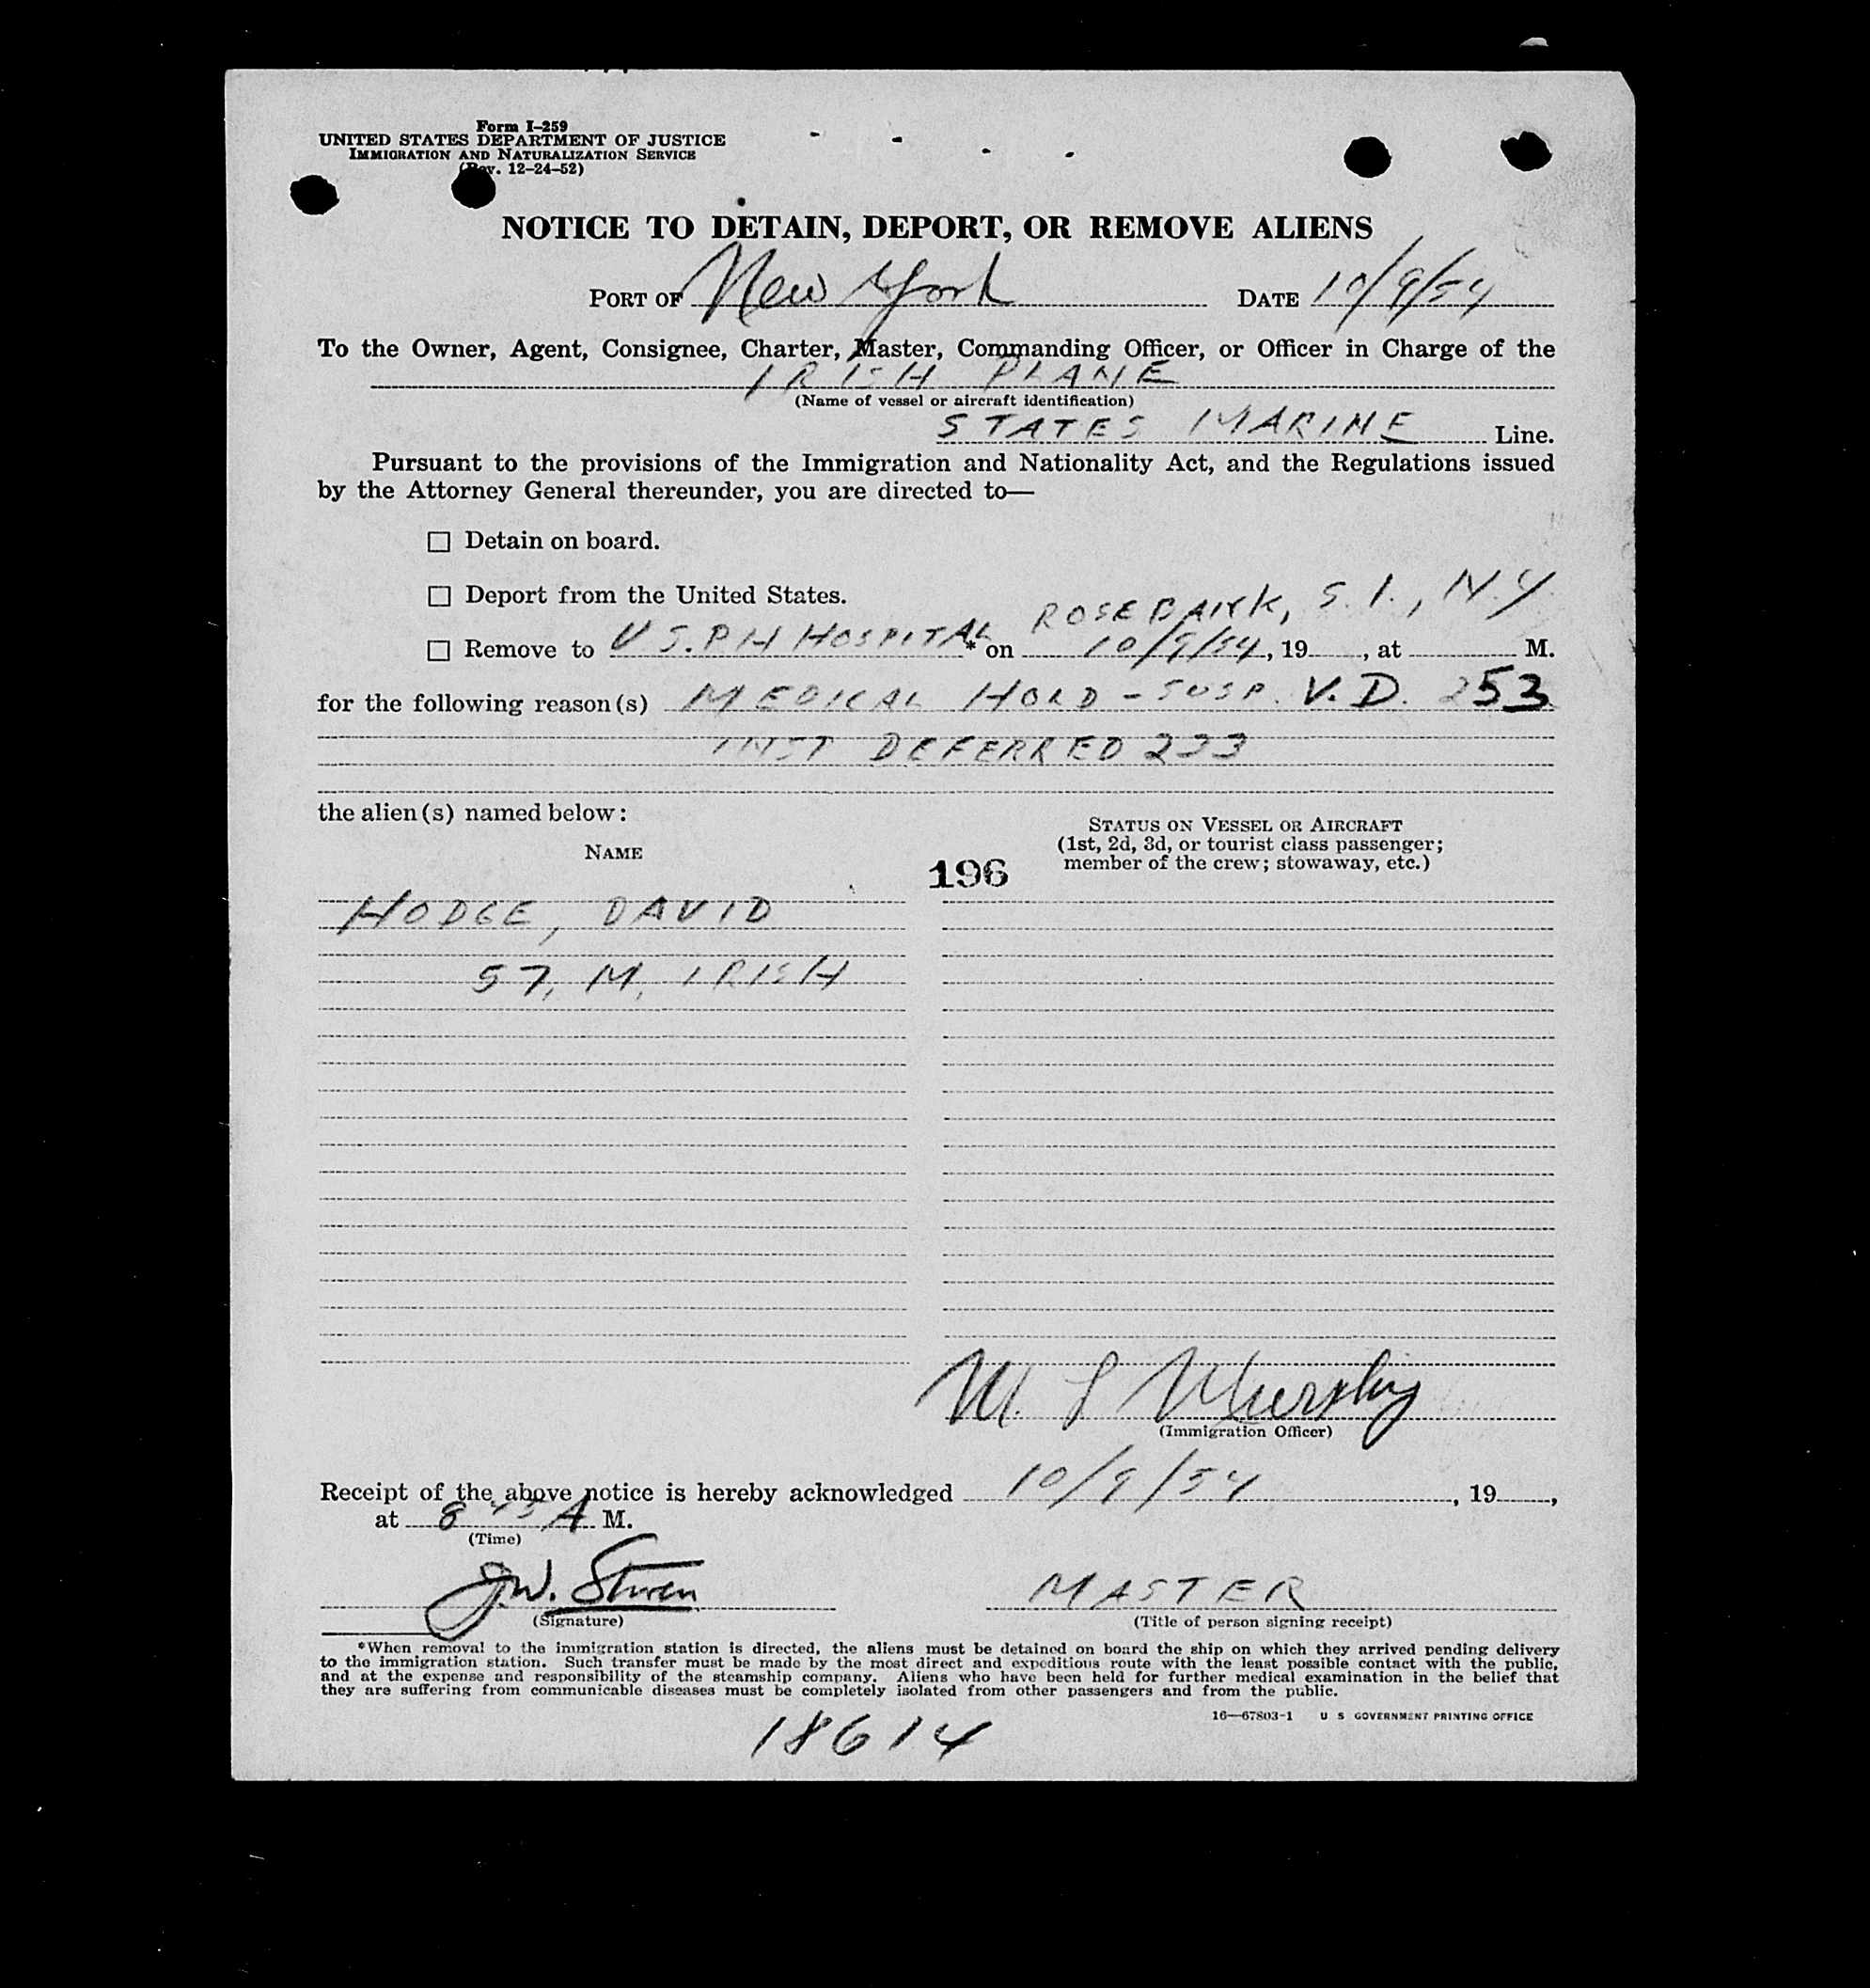 Form I-259
UNITED STATES DEPARTMENT OF JUSTICE
IMMIGRATION AND NATURALIZATION SERVICE
(Rev. 12-24-52)
NOTICE TO DETAIN, DEPORT, OR REMOVE ALIENS
PORT OF New York DATE 10/9/54
To the Owner, Agent, Consignee, Charter, Master, Commanding Officer, or Officer in Charge of the
IRISH PLANE
(Name of vessel or aircraft identification)
STATES MARINE Line.
Pursuant to the provisions of the Immigration and Nationality Act, and the Regulations issued
by the Attorney General thereunder, you are directed to—
☐ Detain on board.
☐ Deport from the United States.
ROSEBANK, S.I., N.Y.
☐ Remove to U.S.P.H HOSPITAL * on 10/9/54, 19 , at M.
for the following reason(s) MEDICAL HOLD - SUSP. V.D. 253
DEFERRED 233
the alien(s) named below:
NAME
196
STATUS ON VESSEL OR AIRCRAFT
(1st, 2d, 3d, or tourist class passenger;
member of the crew; stowaway, etc.)
HODGE, DAVID
57, M, IRISH
M. Murphy
(Immigration Officer)
Receipt of the above notice is hereby acknowledged 10/9/54, 19 ,
at 8 45 A M.
(Time)
J.W.
MASTER
(Signature)
(Title of person signing receipt)
*When removal to the immigration station is directed, the aliens must be detained on board the ship on which they arrived pending delivery
to the immigration station. Such transfer must be made by the most direct and expeditious route with the least possible contact with the public,
and at the expense and responsibility of the steamship company. Aliens who have been held for further medical examination in the belief that
they are suffering from communicable diseases must be completely isolated from other passengers and from the public.
16—67803-1 U S GOVERNMENT PRINTING OFFICE
18614